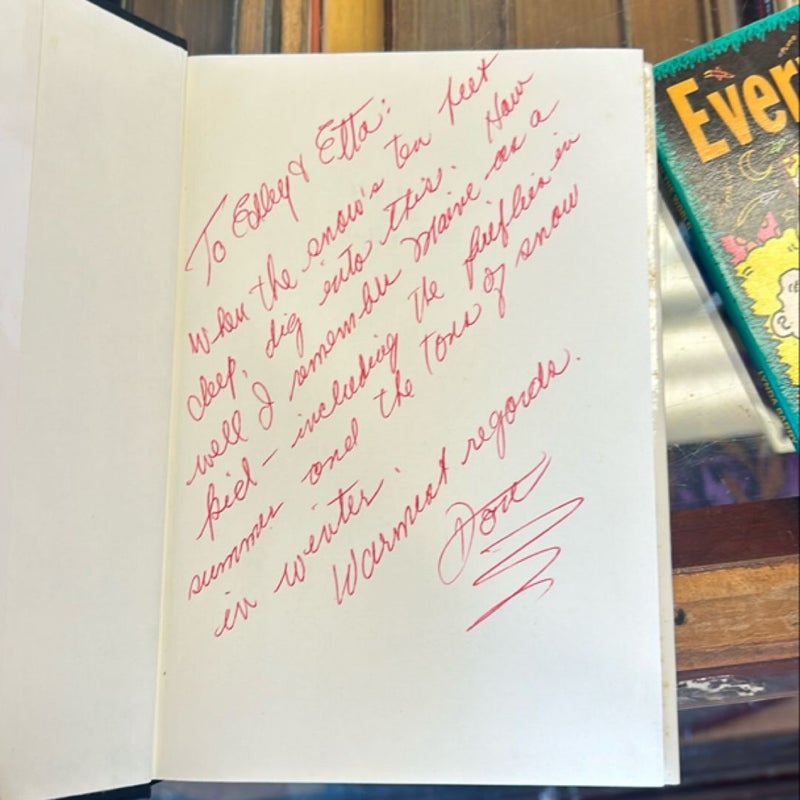 To Edley & Etta:
When the snow's ten feet
deep, dig into this. How
well I remember Maine as a
kid – including the fireflies in
summer and the tons of snow
in winter.
Warmest regards.
Don
Ever
THE WORLD
LYNDA BARRY